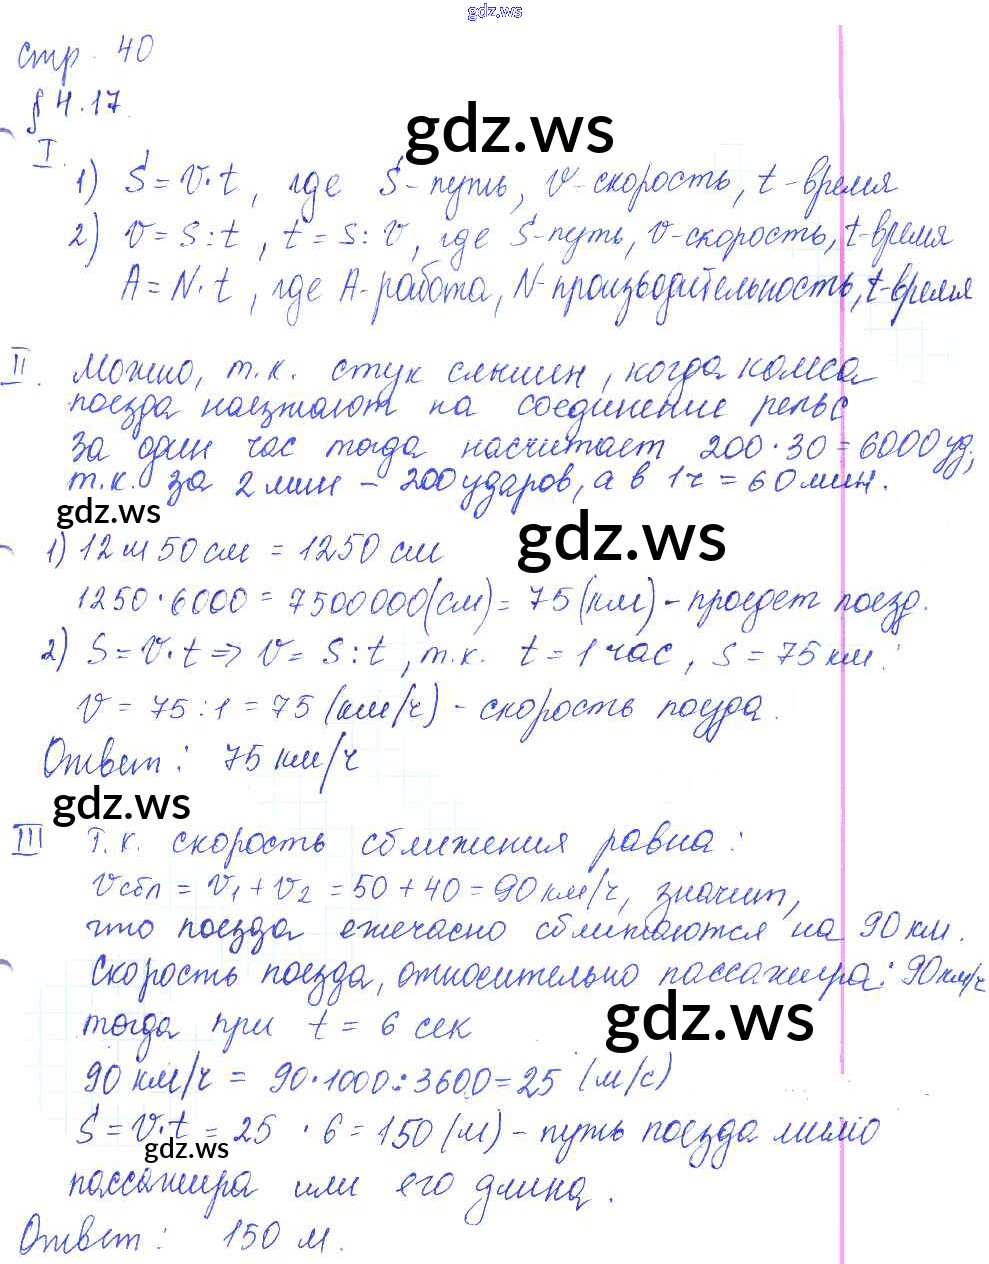 gdz.ws
стр. 40
§ 4.17.
gdz.ws
I.
1) S = v·t, где S - путь, v - скорость, t - время
2) v = s : t, t = s : v, где S - путь, v - скорость, t - время
A = N·t, где A - работа, N - производительность, t - время
II. Можно, т.к. стук слышен, когда колеса
поезда наезжают на соединение рельс
За один час тогда насчитает 200·30 = 6000 уд;
т.к. за 2 мин - 200 ударов, а в 1 ч = 60 мин.
gdz.ws
gdz.ws
1) 12 м 50 см = 1250 см
1250·6000 = 7500000 (см) = 75 (км) - проедет поезд.
2) S = v·t ⇒ v = S : t, т.к. t = 1 час, s = 75 км:
v = 75 : 1 = 75 (км/ч) - скорость поезда.
Ответ: 75 км/ч
gdz.ws
III Т.к. скорость сближения равна:
vсбл = v₁ + v₂ = 50 + 40 = 90 км/ч, значит,
что поезда ежечасно сближаются на 90 км.
Скорость поезда, относительно пассажира: 90 км/ч
тогда при t = 6 сек
gdz.ws
90 км/ч = 90·1000 : 3600 = 25 (м/с)
S = v·t = 25 · 6 = 150 (м) - путь поезда мимо
gdz.ws
пассажира или его длина.
Ответ: 150 м.